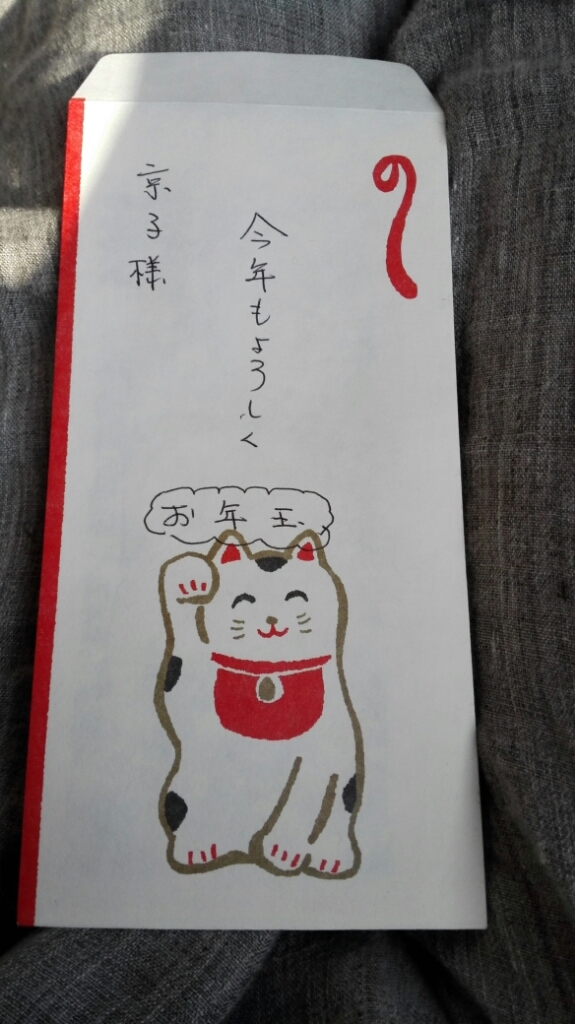 のし
今年もよろしく
京子様
お年玉